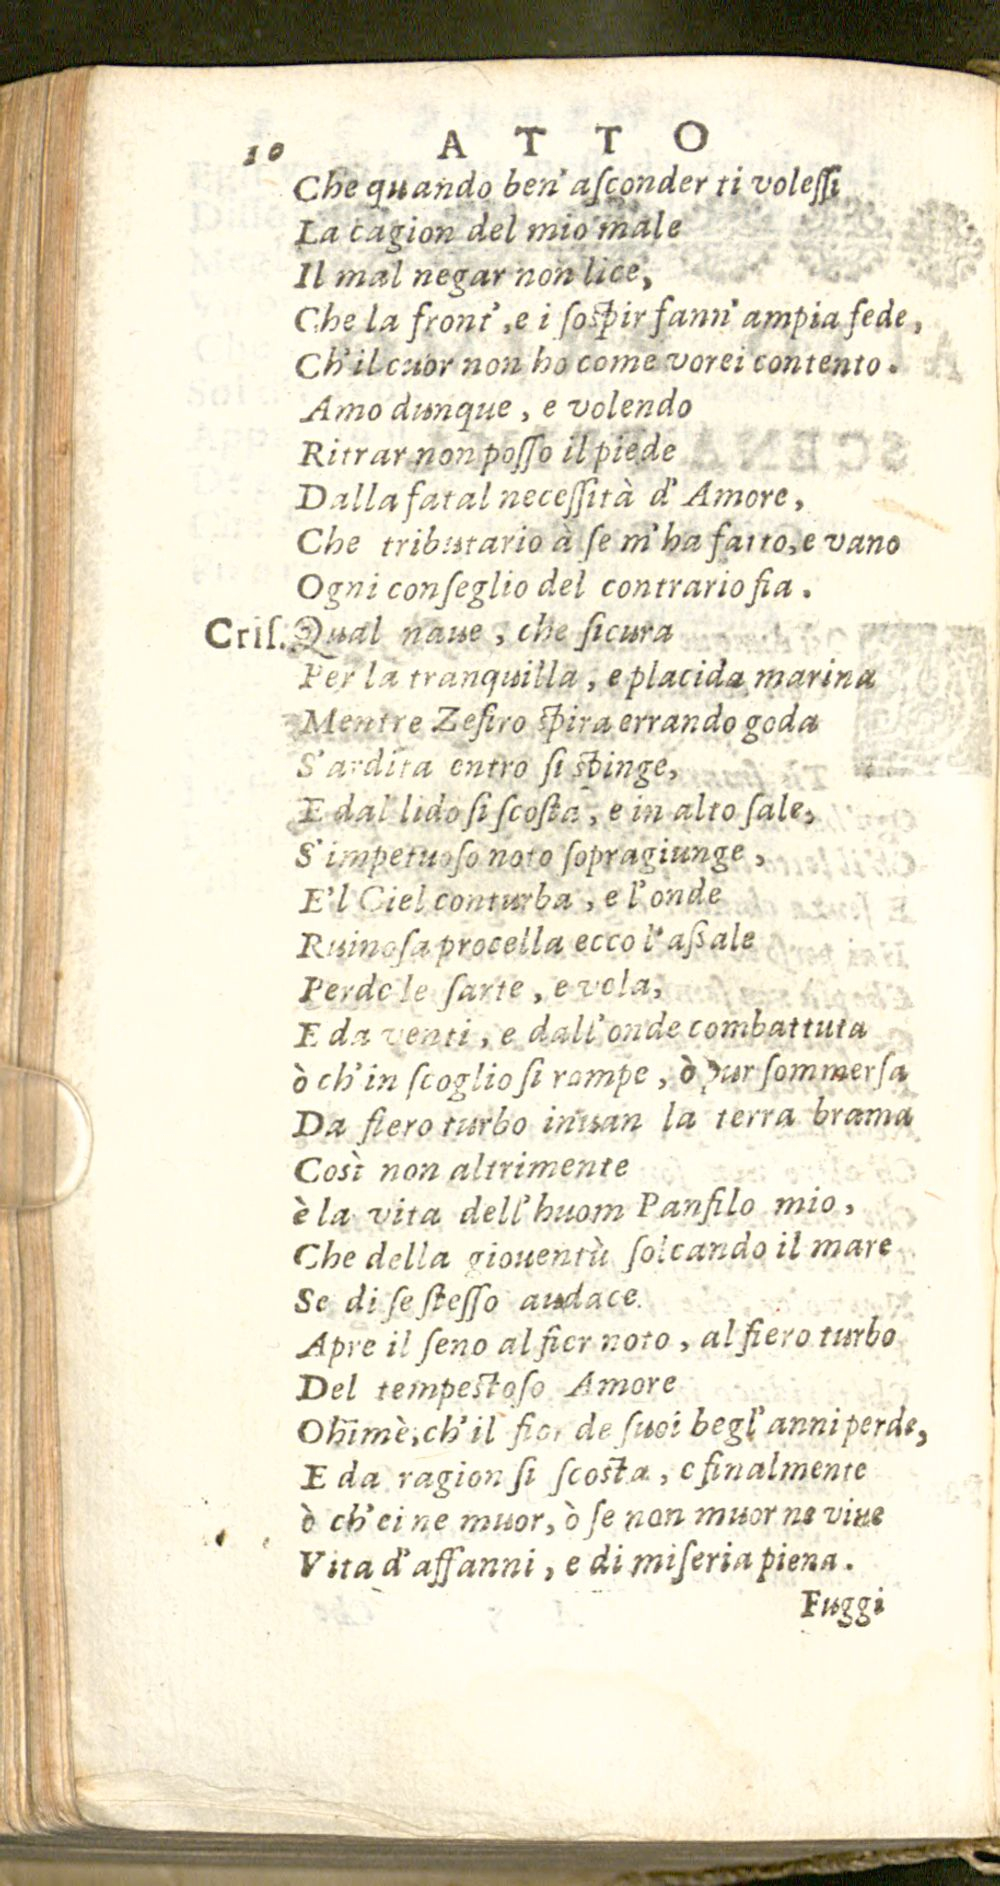 10 ATTO
Che quando ben' aſconder ti voleſſi
La cagion del mio male
Il mal negar non lice,
Che la front', e i ſoſpir fann' ampia fede,
Ch'il cuor non ho come vorei contento.
Amo dunque, e volendo
Ritrar non poſſo il piede
Dalla fatal neceſſità d'Amore,
Che tributario à ſe m'ha fatto, e vano
Ogni conſeglio del contrario fia.
Criſ. Qual naue, che ſicura
Per la tranquilla, e placida marina
Mentre Zefiro ſpira errando goda
S'ardita entro ſi ſpinge,
E dal lido ſi ſcoſta, e in alto ſale,
S'impetuoſo noto ſopragiunge,
E'l Ciel conturba, e l'onde
Ruinoſa procella ecco l'aſsale
Perde le ſarte, e vela,
E da venti, e dall'onde combattuta
ò ch'in ſcoglio ſi rompe, ò pur ſommerſa
Da fiero turbo inuan la terra brama
Così non altrimente
è la vita dell'huom Panfilo mio,
Che della giouentù ſolcando il mare
Se di ſe ſteſſo audace
Apre il ſeno al fier noto, al fiero turbo
Del tempeſtoſo Amore
Ohimè, ch'il fior de ſuoi begl'anni perde,
E da ragion ſi ſcoſta, e finalmente
ò ch'ei ne muor, ò ſe non muor ne viue
Vita d'affanni, e di miſeria piena.
Fuggi